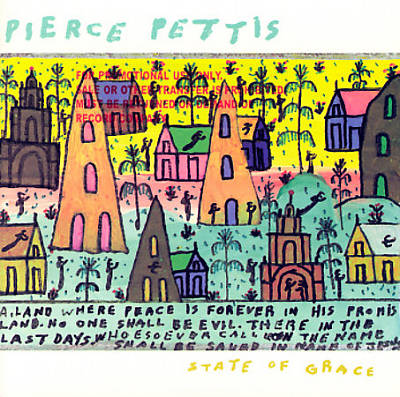 PIERCE PETTIS
FOR PROMOTIONAL USE ONLY
SALE OR OTHER TRANSFER IS PROHIBITED
MUST BE RETURNED ON DEMAND OF
RECORD COMPANY
A. LAND WHERE PEACE IS FOREVER IN HIS PROMIS
LAND. NO ONE SHALL BE EVIL. THERE IN THE
LAST DAYS WHOESOEVER CALL ON THE NAME
SHALL BE SAVED IN NAME OF JESUS
STATE OF GRACE